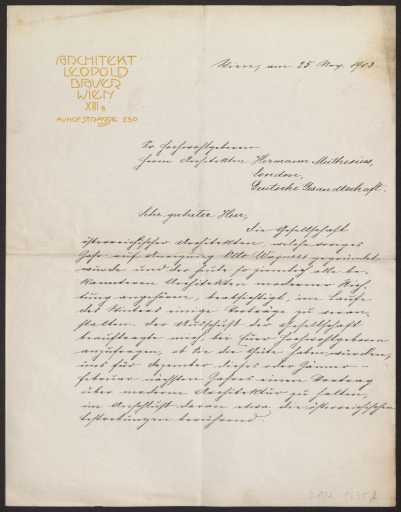 ARCHITEKT
LEOPOLD
BAUER
WIEN
XIII
AUHOFSTRASSE 230
Wien, am 25. Nov. 190
Sr. Hochwohlgeboren
Herrn Architekten Hermann Muthesius,
London,
Deutsche Gesandtschaft.
Sehr geehrter Herr,
Die Gesellschaft
österreichischer Architekten, welche voriges
Jahr auf Anregung Otto Wagners gegründet
wurde und der heute so ziemlich alle be-
kannteren Architekten moderner Rich-
tung angehören, beabsichtigt, im Laufe
des Winters einige Vorträge zu veran-
stalten. Der Ausschuß der Gesellschaft
beauftragte mich bei Euer Hochwohlgeboren
anzufragen, ob Sie die Güte haben würden,
uns für Dezember dieses oder Jänner-
Februar nächsten Jahres einen Vortrag
über moderne Architektur zu halten,
im Anschluß daran etwa die österreichischen
Bestrebungen berührend.